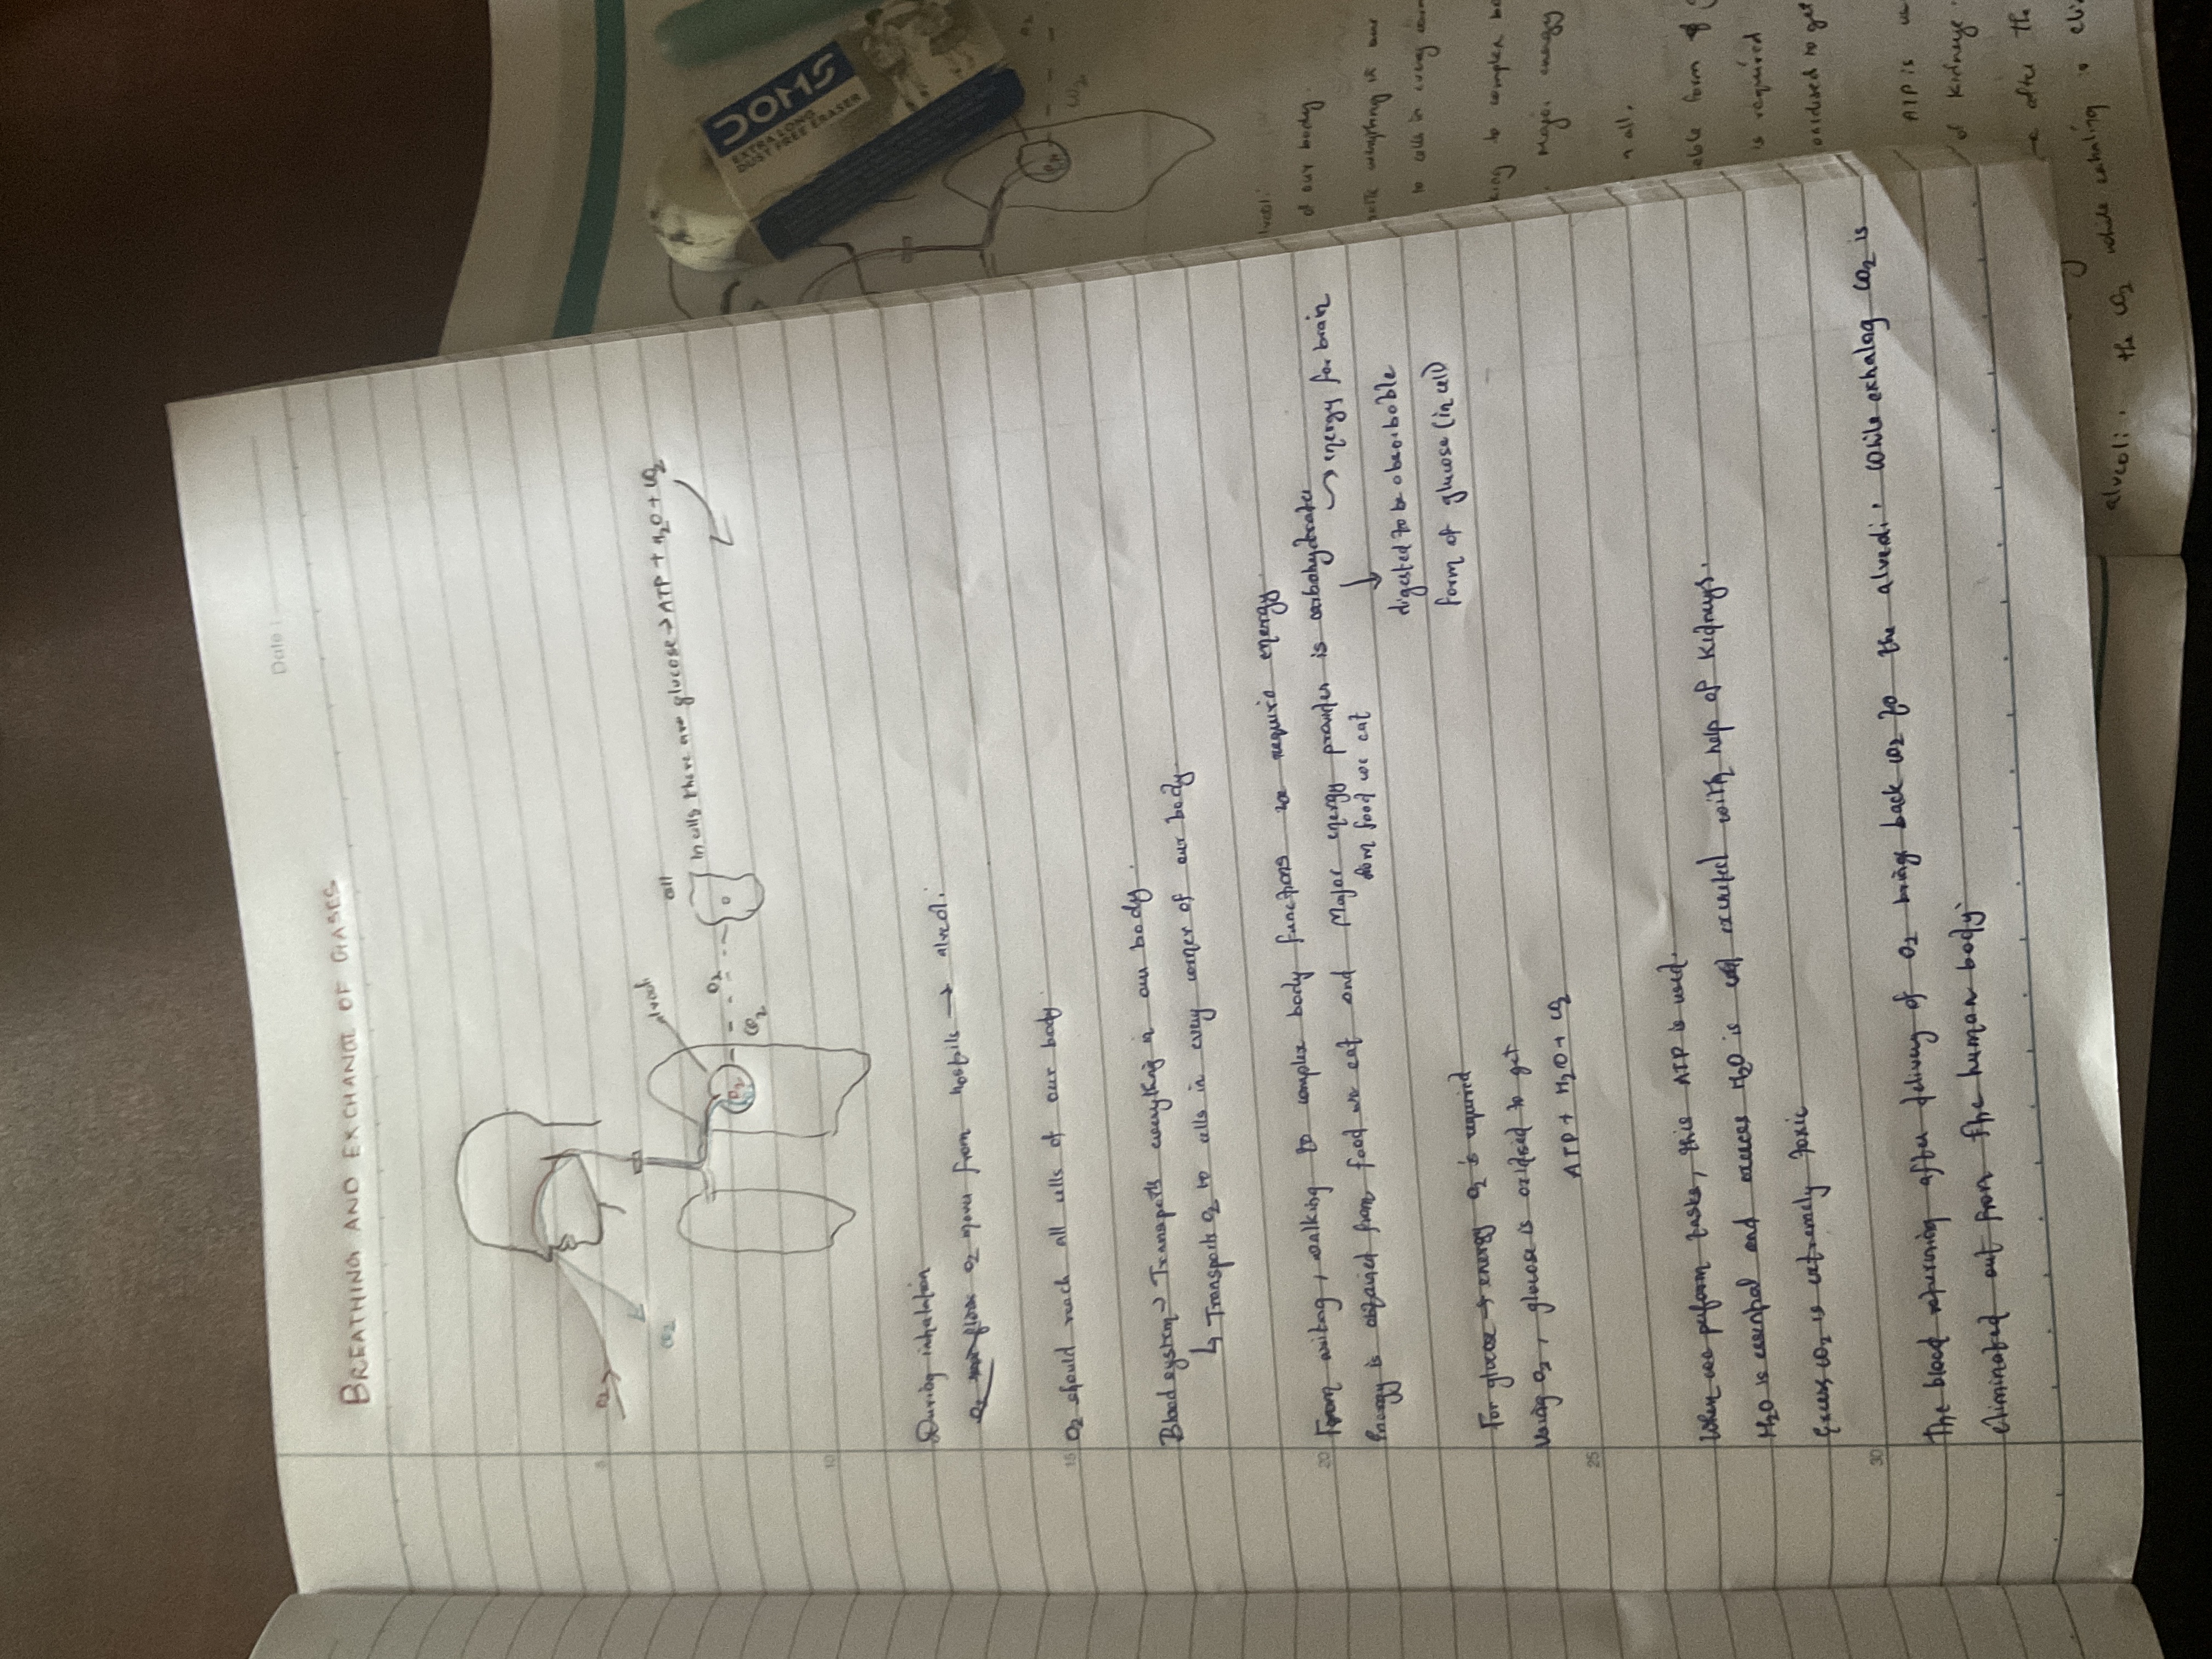 Date :
BREATHING AND EXCHANGE OF GASES
O2
CO2
alveoli
O2
CO2
O2
cell
In cells there are glucose → ATP + H2O + CO2
During inhalation
O2 moves from nostrils → alveoli
O2 should reach all cells of our body
Blood system → Transports everything in our body.
↳ Transports O2 to cells in every corner of our body.
From writing, walking to complex body functions we require energy.
Energy is obtained from food we eat and Major energy provider is carbohydrates → energy for brain
from food we eat
↓
digested to be absorbable
form of glucose (in cell)
For glucose → energy O2 is required
Using O2, glucose is oxidised to get
ATP + H2O + CO2
When we perform tasks, this ATP is used.
H2O is essential and excess H2O is excreted with help of kidneys.
Excess CO2 is extremely toxic
The blood returning after delivery of O2 brings back CO2 to the alveoli. While exhalng CO2 is
eliminated out from the human body.
5
10
15
20
25
30
DOMS
EXTRA LONG
DUST FREE ERASER
O2
CO2
of our body.
to cells in every
to complex
Major energy
form of
is required
oxidised to get
ATP is
of kidneys.
after the
alveoli. the CO2 while exhaling is